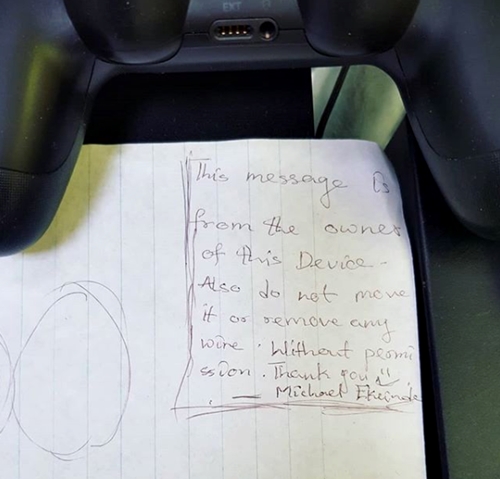 EXT
This message is
from the owner
of this Device -
Also do not move
it or remove any
wire. Without permi
ssion. Thank you
— Michael